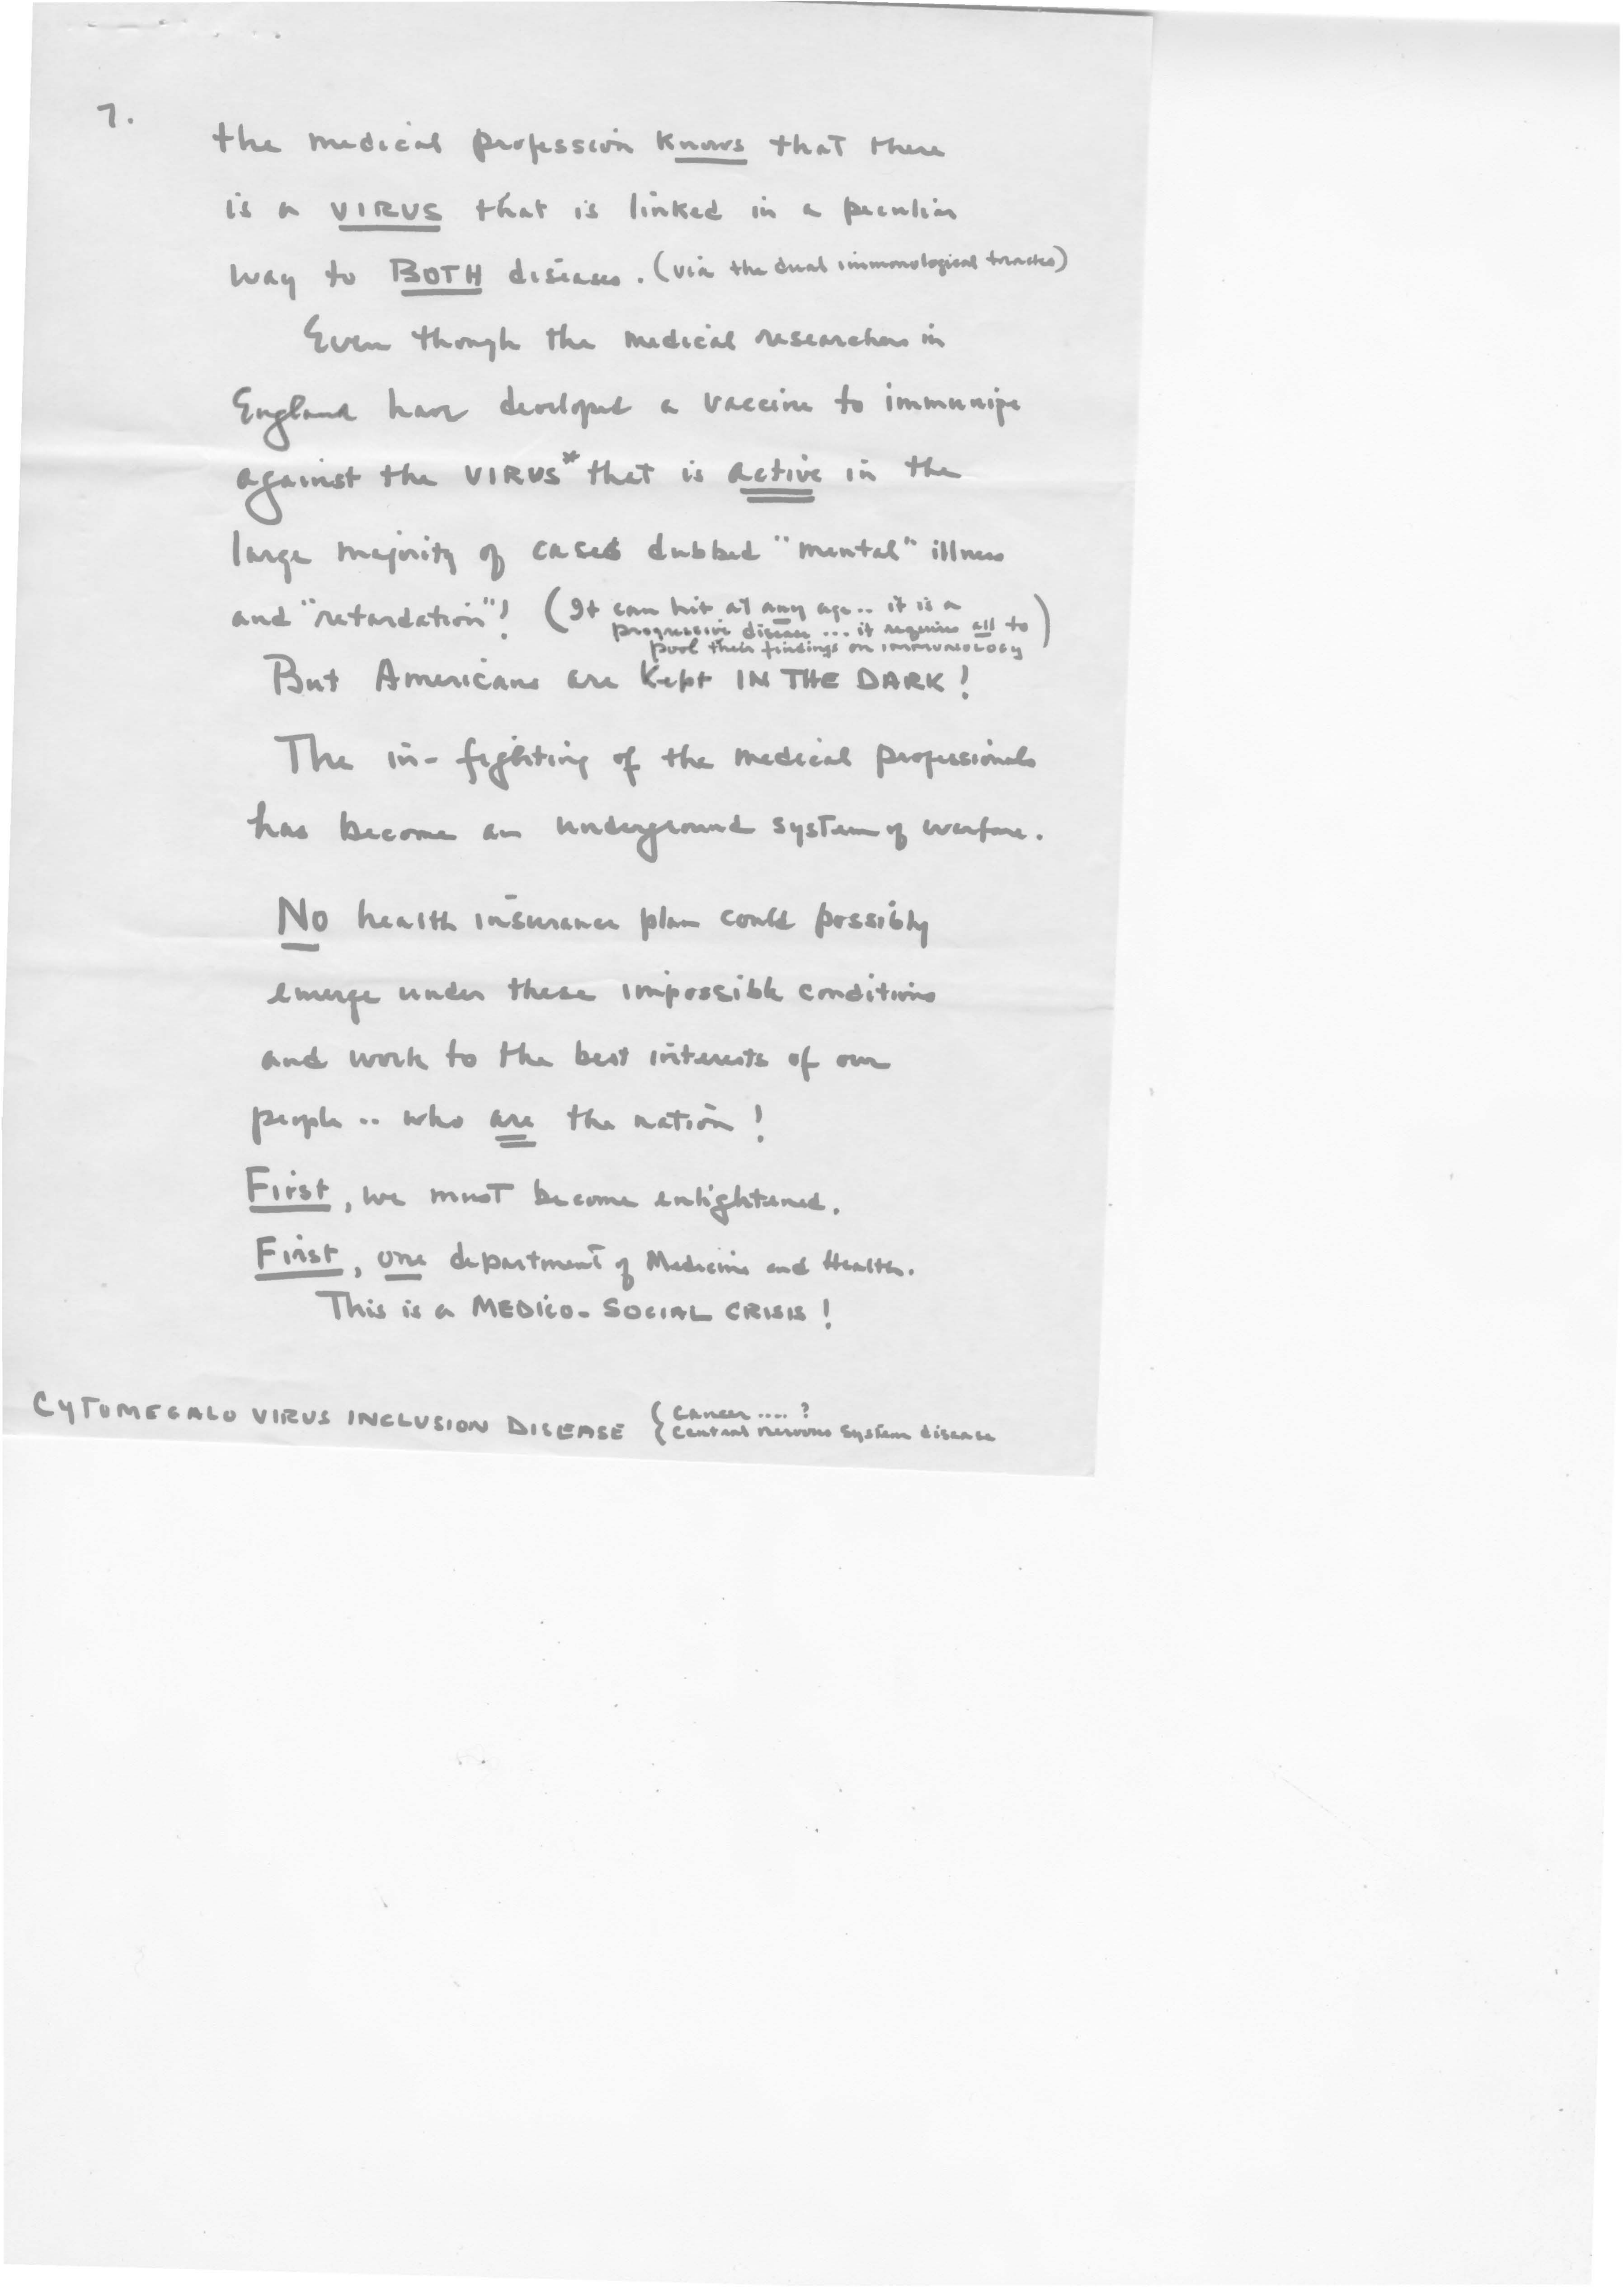 7.
the medical profession knows that there
is a VIRUS that is linked in a peculiar
way to BOTH diseases. (via the dual immunological tractes)
Even though the medical researchers in
England have developed a vaccine to immunize
against the VIRUS* that is active in the
large majority of cases dubbed "mental" illness
and "retardation"! (It can hit at any age.. it is a
progressive disease ... it requires all to
pool their findings on IMMUNOLOGY)
But Americans are kept IN THE DARK!
The in-fighting of the medical professionals
has become an underground system of warfare.
No health insurance plan could possibly
emerge under these impossible conditions
and work to the best interests of our
people .. who are the nation!
First, we must become enlightened.
First, one department of Medicine and Health.
This is a MEDICO-SOCIAL CRISIS!
CYTOMEGALO VIRUS INCLUSION DISEASE { Cancer .... ?
{ Central nervous system disease